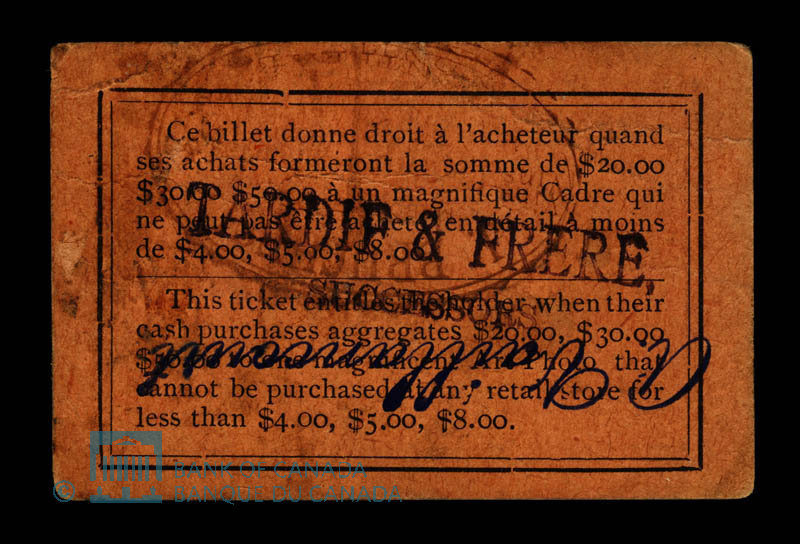 Ce billet donne droit à l'acheteur quand
ses achats formeront la somme de $20.00
$30.00 $50.00 à un magnifique Cadre qui
ne peut pas être acheté en détail à moins
de $4.00, $5.00, $8.00.
TARDIF & FRERE,
This ticket entitles the holder when their
cash purchases aggregates $20.00, $30.00
$50.00 to one magnificent Art Photo that
cannot be purchased at any retail store for
less than $4.00, $5.00, $8.00.
© BANK OF CANADA
BANQUE DU CANADA